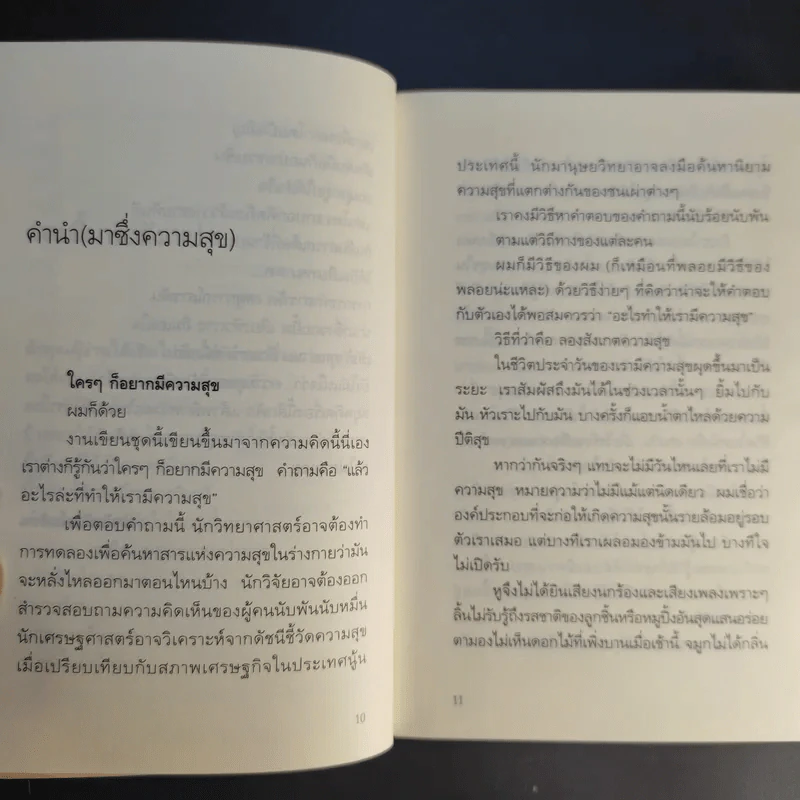 คำนำ(มาซึ่งความสุข)
ใครๆ ก็อยากมีความสุข
ผมก็ด้วย
งานเขียนชุดนี้เขียนขึ้นมาจากความคิดนี้นี่เอง
เราต่างก็รู้กันว่าใครๆ ก็อยากมีความสุข คำถามคือ “แล้ว
อะไรล่ะที่ทำให้เรามีความสุข”
เพื่อตอบคำถามนี้ นักวิทยาศาสตร์อาจต้องทำ
การทดลองเพื่อค้นหาสารแห่งความสุขในร่างกายว่ามัน
จะหลั่งไหลออกมาตอนไหนบ้าง นักวิจัยอาจต้องออก
สำรวจสอบถามความคิดเห็นของผู้คนนับพันนับหมื่น
นักเศรษฐศาสตร์อาจวิเคราะห์จากดัชนีชี้วัดความสุข
เมื่อเปรียบเทียบกับสภาพเศรษฐกิจในประเทศนู้น
10
ประเทศนี้ นักมานุษยวิทยาอาจลงมือค้นหานิยาม
ความสุขที่แตกต่างกันของชนเผ่าต่างๆ
เราคงมีวิธีหาคำตอบของคำถามนี้นับร้อยนับพัน
ตามแต่วิถีทางของแต่ละคน
ผมก็มีวิธีของผม (ก็เหมือนที่พลอยมีวิธีของ
พลอยน่ะแหละ) ด้วยวิธีง่ายๆ ที่คิดว่าน่าจะให้คำตอบ
กับตัวเองได้พอสมควรว่า “อะไรทำให้เรามีความสุข”
วิธีที่ว่าคือ ลองสังเกตความสุข
ในชีวิตประจำวันของเรามีความสุขผุดขึ้นมาเป็น
ระยะ เราสัมผัสถึงมันได้ในช่วงเวลานั้นๆ ยิ้มไปกับ
มัน หัวเราะไปกับมัน บางครั้งก็แอบน้ำตาไหลด้วยความ
ปีติสุข
หากว่ากันจริงๆ แทบจะไม่มีวันไหนเลยที่เราไม่มี
ความสุข หมายความว่าไม่มีแม้แต่นิดเดียว ผมเชื่อว่า
องค์ประกอบที่จะก่อให้เกิดความสุขนั้นรายล้อมอยู่รอบ
ตัวเราเสมอ แต่บางทีเราเผลอมองข้ามมันไป บางทีใจ
ไม่เปิดรับ
หูจึงไม่ได้ยินเสียงนกร้องและเสียงเพลงเพราะๆ
ลิ้นไม่รับรู้ถึงรสชาติของลูกชิ้นหรือหมูปิ้งอันสุดแสนอร่อย
ตามองไม่เห็นดอกไม้ที่เพิ่งบานเมื่อเช้านี้ จมูกไม่ได้กลิ่น
11